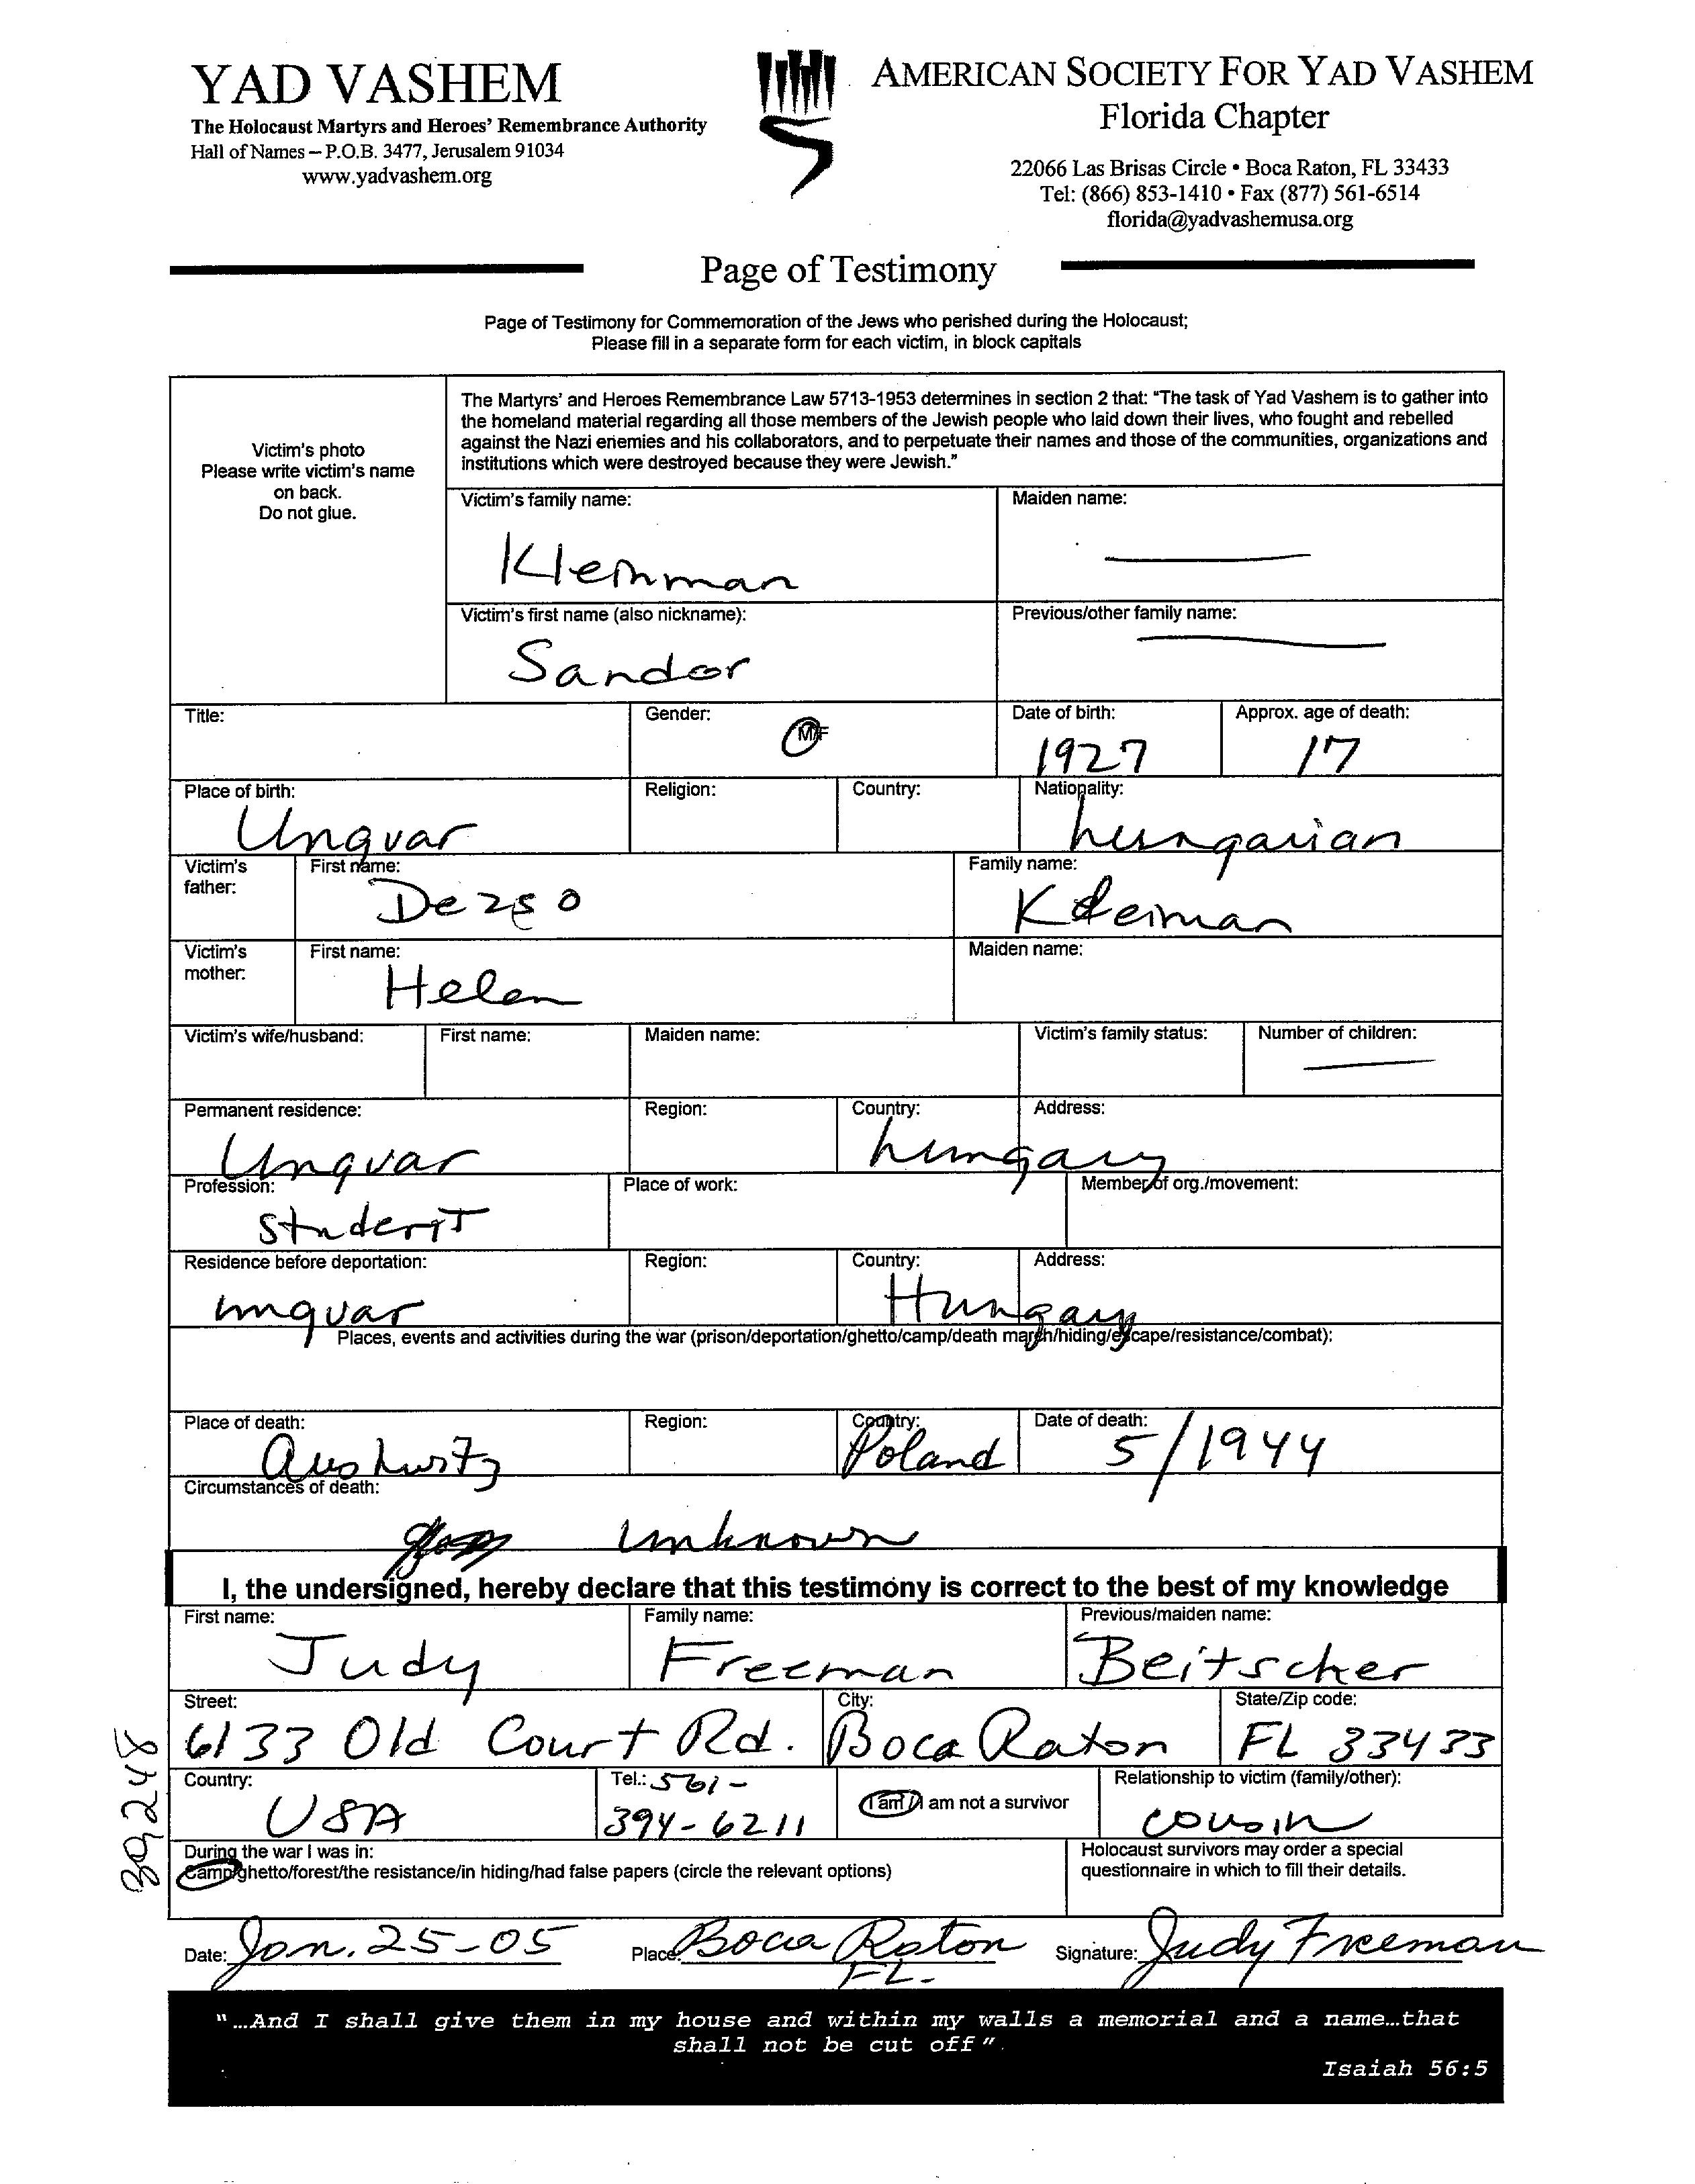 YAD VASHEM
The Holocaust Martyrs and Heroes' Remembrance Authority
Hall of Names – P.O.B. 3477, Jerusalem 91034
www.yadvashem.org
AMERICAN SOCIETY FOR YAD VASHEM
Florida Chapter
22066 Las Brisas Circle • Boca Raton, FL 33433
Tel: (866) 853-1410 • Fax (877) 561-6514
florida@yadvashemusa.org
Page of Testimony
Page of Testimony for Commemoration of the Jews who perished during the Holocaust;
Please fill in a separate form for each victim, in block capitals
Victim's photo
Please write victim's name
on back.
Do not glue.
The Martyrs' and Heroes Remembrance Law 5713-1953 determines in section 2 that: "The task of Yad Vashem is to gather into
the homeland material regarding all those members of the Jewish people who laid down their lives, who fought and rebelled
against the Nazi enemies and his collaborators, and to perpetuate their names and those of the communities, organizations and
institutions which were destroyed because they were Jewish."
Victim's family name: Maiden name:
Kleinman
Victim's first name (also nickname): Previous/other family name:
Sandor
Title: Gender: M/F Date of birth: Approx. age of death:
1927 17
Place of birth: Religion: Country: Nationality:
Ungvar hungarian
Victim's father: First name: Family name:
Dezso Kleiman
Victim's mother: First name: Maiden name:
Helen
Victim's wife/husband: First name: Maiden name: Victim's family status: Number of children:
Permanent residence: Region: Country: Address:
Ungvar hungary
Profession: Place of work: Member of org./movement:
student
Residence before deportation: Region: Country: Address:
ungvar Hungary
Places, events and activities during the war (prison/deportation/ghetto/camp/death march/hiding/escape/resistance/combat):
Place of death: Region: Country: Date of death:
Aushwitz Poland 5/1944
Circumstances of death:
unknown
I, the undersigned, hereby declare that this testimony is correct to the best of my knowledge
First name: Family name: Previous/maiden name:
Judy Freeman Beitscher
Street: City: State/Zip code:
6133 Old Court Rd. Boca Raton FL 33433
Country: Tel.: 561- I am/I am not a survivor Relationship to victim (family/other):
USA 394-6211 cousin
During the war I was in: Holocaust survivors may order a special
camp/ghetto/forest/the resistance/in hiding/had false papers (circle the relevant options) questionnaire in which to fill their details.
Date: Jan. 25-05 Place: Boca Raton Signature: Judy Freeman
FL.
"...And I shall give them in my house and within my walls a memorial and a name...that
shall not be cut off".
Isaiah 56:5
309248